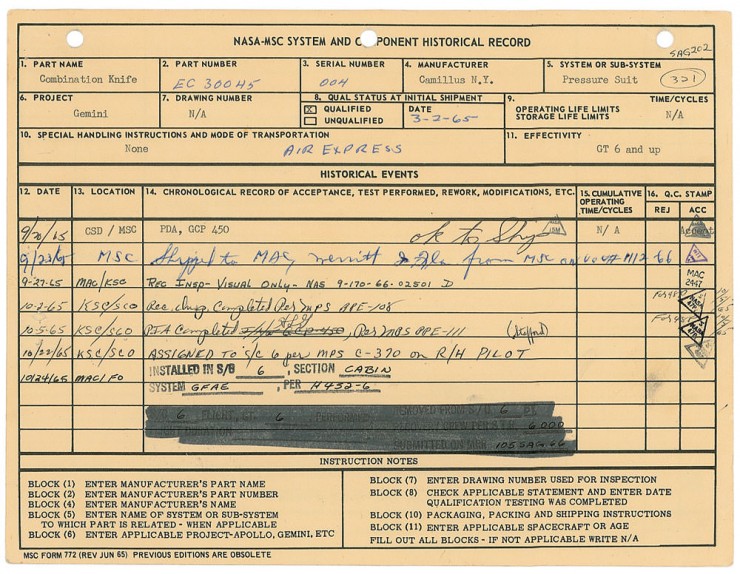 NASA-MSC SYSTEM AND COMPONENT HISTORICAL RECORD
SAG202
1. PART NAME
Combination Knife
2. PART NUMBER
EC 30045
3. SERIAL NUMBER
004
4. MANUFACTURER
Camillus N.Y.
5. SYSTEM OR SUB-SYSTEM
Pressure Suit
321
6. PROJECT
Gemini
7. DRAWING NUMBER
N/A
8. QUAL STATUS AT INITIAL SHIPMENT
X QUALIFIED
UNQUALIFIED
DATE
3-2-65
9. TIME/CYCLES
OPERATING LIFE LIMITS
STORAGE LIFE LIMITS
N/A
10. SPECIAL HANDLING INSTRUCTIONS AND MODE OF TRANSPORTATION
None
AIR EXPRESS
11. EFFECTIVITY
GT 6 and up
HISTORICAL EVENTS
12. DATE
13. LOCATION
14. CHRONOLOGICAL RECORD OF ACCEPTANCE, TEST PERFORMED, REWORK, MODIFICATIONS, ETC.
15. CUMULATIVE OPERATING TIME/CYCLES
16. Q.C. STAMP
REJ
ACC
9/20/65 CSD / MSC PDA, GCP 450 ok to Ship N/A Accept
9/23/65 MSC Shipped to MAC, Merritt Is Fla from MSC on
9-27-65 MAC/KSC REC INSP- VISUAL ONLY- NAS 9-170-66-02501 D MAC 2447
10-2-65 KSC/SCO Rec. Insp. Completed Per MPS APE-108
10-5-65 KSC/SCO PIA Completed Per MPS APE-111 (Stafford)
10/22/65 KSC/SCO ASSIGNED TO S/C 6 per MPS C-370 on R/H PILOT
INSTALLED IN S/C 6, SECTION CABIN
10/24/65 MAC/FO SYSTEM GFAE, PER H452-6
6 FLIGHT, GT. 6 REMOVED FROM S/C 6 BY
6000
SUBMITTED ON MSR 105SAG66
INSTRUCTION NOTES
BLOCK (1) ENTER MANUFACTURER'S PART NAME
BLOCK (2) ENTER MANUFACTURER'S PART NUMBER
BLOCK (4) ENTER MANUFACTURER'S NAME
BLOCK (5) ENTER NAME OF SYSTEM OR SUB-SYSTEM
TO WHICH PART IS RELATED - WHEN APPLICABLE
BLOCK (6) ENTER APPLICABLE PROJECT-APOLLO, GEMINI, ETC
BLOCK (7) ENTER DRAWING NUMBER USED FOR INSPECTION
BLOCK (8) CHECK APPLICABLE STATEMENT AND ENTER DATE
QUALIFICATION TESTING WAS COMPLETED
BLOCK (10) PACKAGING, PACKING AND SHIPPING INSTRUCTIONS
BLOCK (11) ENTER APPLICABLE SPACECRAFT OR AGE
FILL OUT ALL BLOCKS - IF NOT APPLICABLE WRITE N/A
MSC FORM 772 (REV JUN 65) PREVIOUS EDITIONS ARE OBSOLETE